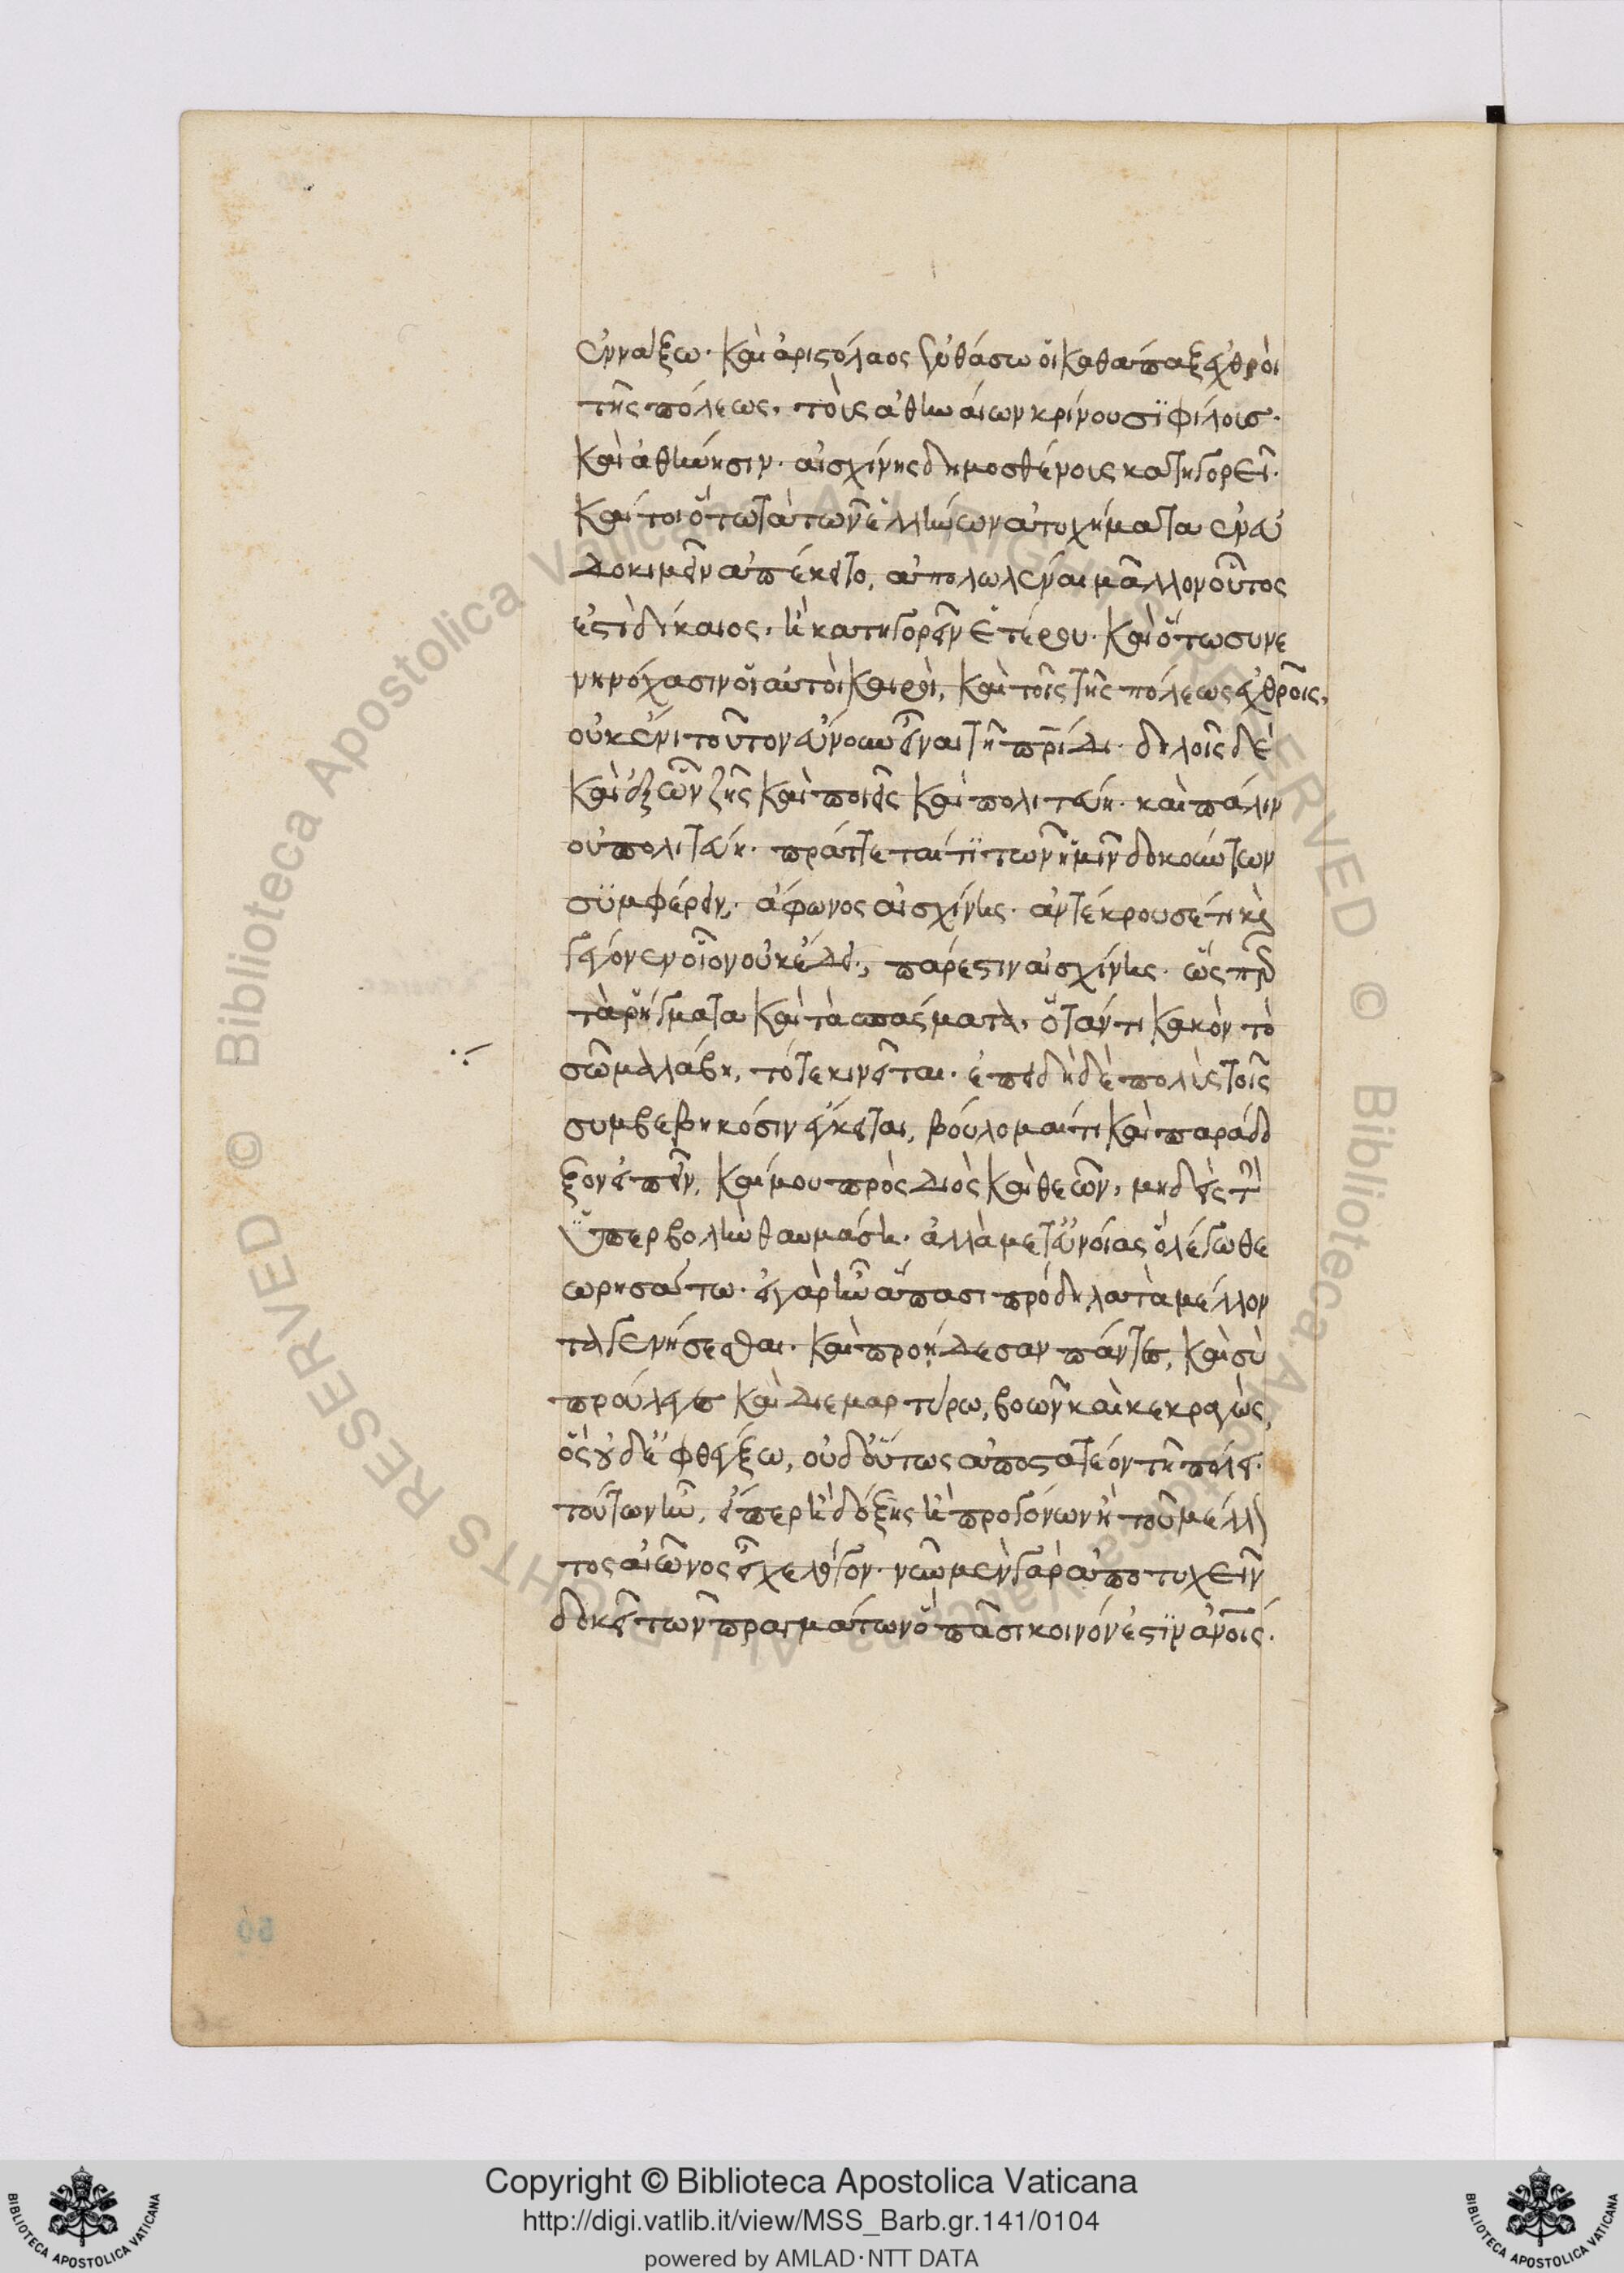 ἐν νάξω· καὶ ἀριστόλαος ἐν θάσω οἱ καθάπαξ ἐχθροὶ
τῆς πόλεως, τοὺς ἀθηναίων κρίνουσϊ φίλους·
καὶ ἀθήνησιν· αἰσχίνης δημοσθένους κατηγορεῖ·
καίτοι ὅτω τὰ τῶν ἑλλήνων ἀτυχήματα ἐνευ
δοκιμεῖν ἀπέκειτο, ἀπολωλέναι μᾶλλον οὗτος
ἐστὶ δίκαιος, ἢ κατηγορεῖν ἑτέρου· καὶ ὅτω συνε
νηνόχασιν οἱ αὐτοὶ καιροὶ, καὶ τοῖς τῆς πόλεως ἐχθροῖς,
οὐκ ἔνι τοῦτον εὔνουν εἶναι τῆ πρίδι· δηλοῖς δὲ
καὶ ἐξ ὧν ζῆς καὶ ποιεῖς καὶ πολιτεύη· καὶ πάλιν
οὐ πολιτεύη· πράττεταί τϊ τῶν ἡμῖν δοκούντων
συμφέρειν, ἄφωνος αἰσχίνης· ἀντέκρουσέ τι καὶ
γέγονεν οἷον οὐκ ἔδει, πάρεστιν αἰσχίνης· ὥσπερ
τὰ ῥήγματα καὶ τὰ σπάσματα, ὅταν τι κακὸν τὸ
σῶμα λάβη, τότε κινεῖται· ἐπειδὴ δὲ πολὺς τοῖς
συμβεβηκόσιν ἔγκειται, βούλομαί τι καὶ παράδο
ξον εἰπεῖν, καί μου πρὸς διὸς καὶ θεῶν, μηδεὶς τὴν
ὑπερβολὴν θαυμάση· ἀλλὰ μετ' εὐνοίας ὃ λέγω θε
ωρησάτω· εἰ γὰρ ἦν ἅπασι πρόδηλα τὰ μέλλον
τα γενήσεσθαι· καὶ προήδεσαν πάντες, καὶ σὺ
προὔλεγες καὶ διεμαρτύρω, βοῶν καὶ κεκραγὼς,
ὃς οὐδ' ἐφθέγξω, οὐδ' οὕτως ἀποστατέον τῆ πόλει
τούτων ἦν, εἴπερ ἢ δόξης ἢ προγόνων ἢ τοῦ μέλλον
τος αἰῶνος εἶχε λόγον· νῦν μὲν γὰρ ἀποτυχεῖν
δοκεῖ τῶν πραγμάτων ὃ πᾶσι κοινόν ἐστϊν ἀνοις·
50
Copyright © Biblioteca Apostolica Vaticana
http://digi.vatlib.it/view/MSS_Barb.gr.141/0104
powered by AMLAD·NTT DATA